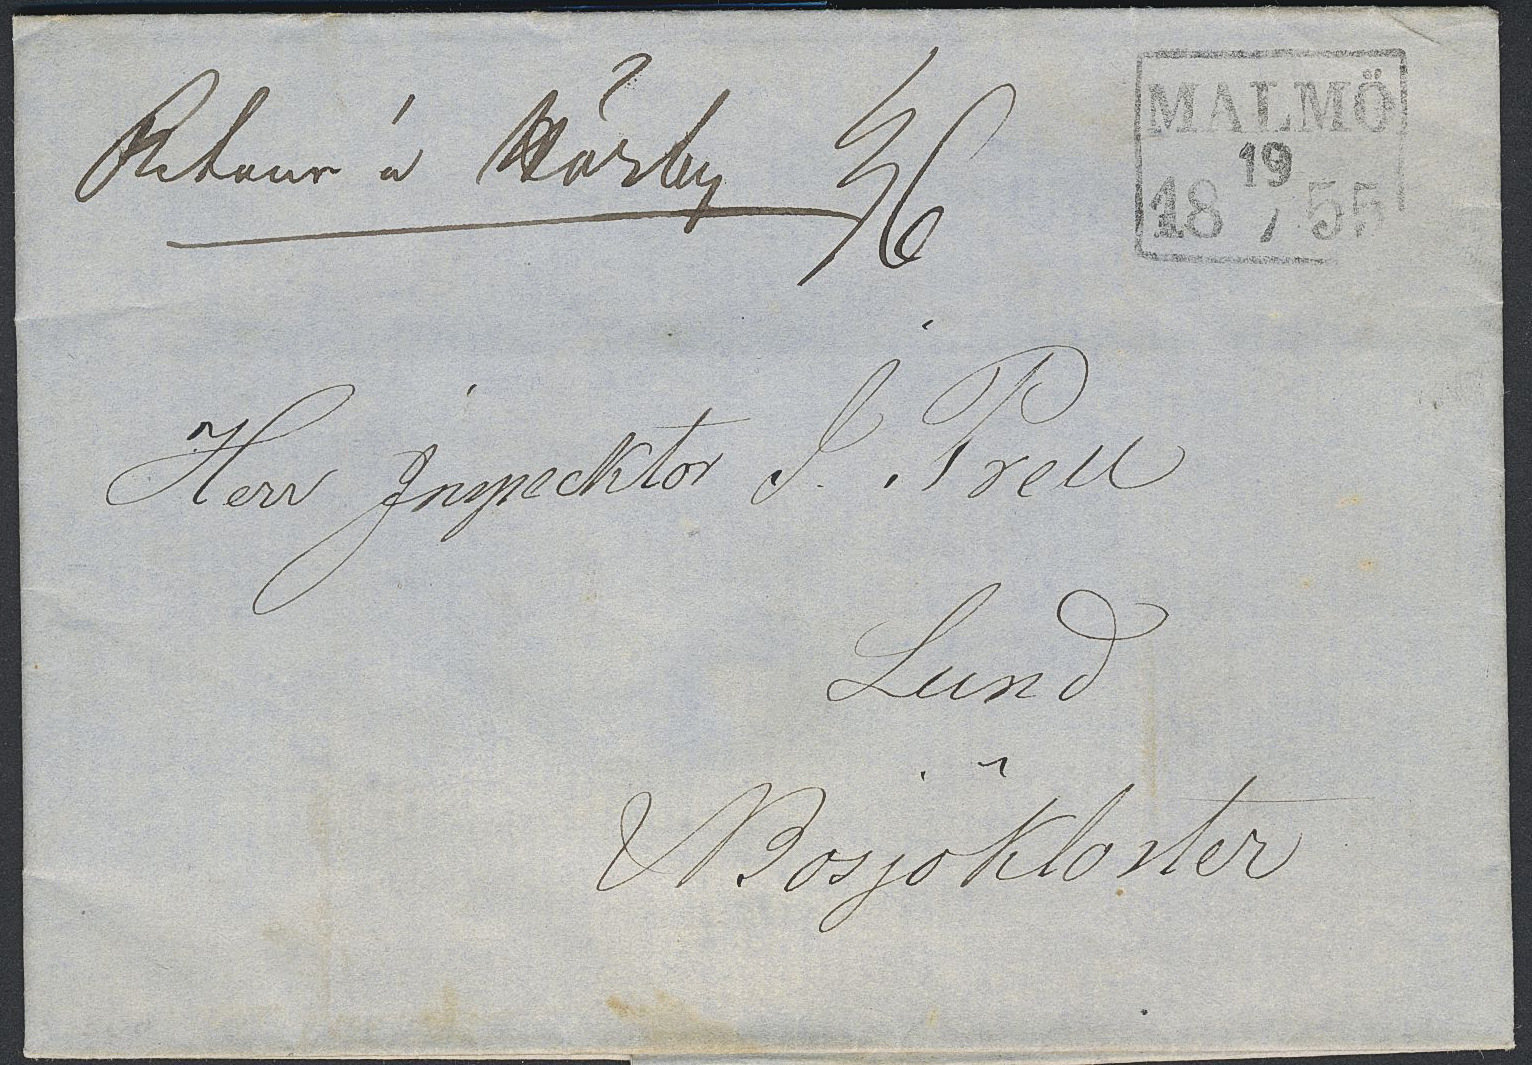 Retour à Hörby
MALMÖ
19
18 / 55
Herr Inspecktor J. Prell
Lund
& Bosjökloster